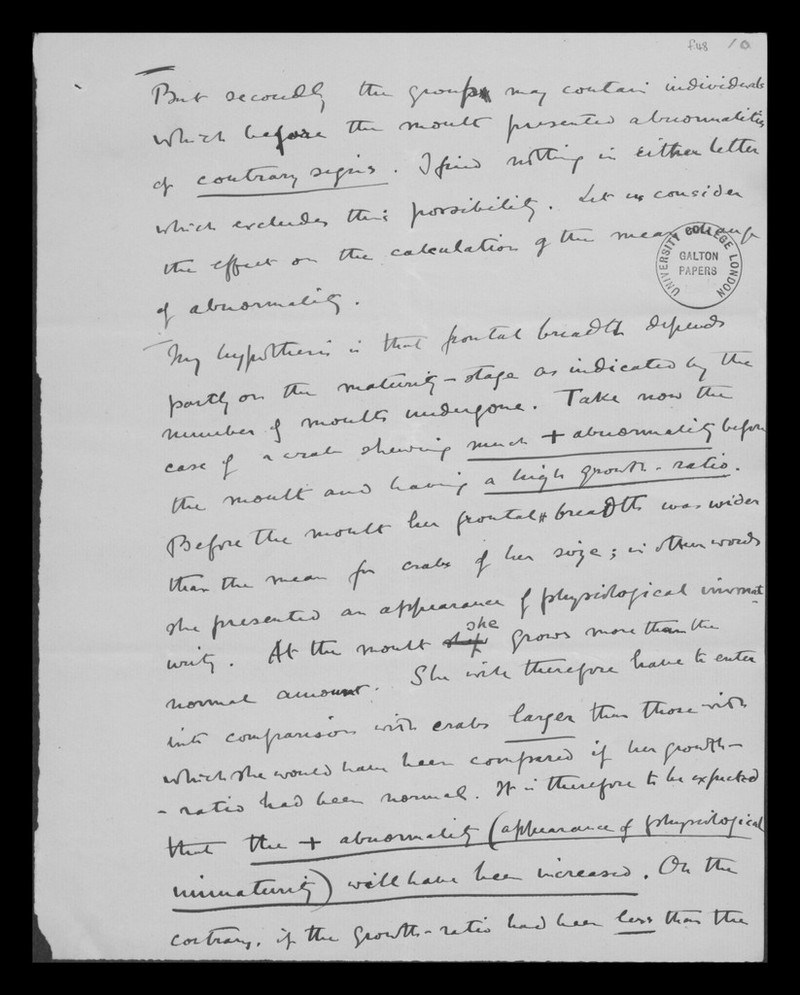 f48 10
But secondly the groups may contain individuals
which before the moult presented abnormalities
of contrary signs. I find nothing in either letter
which excludes this possibility. Let us consider
the effect on the calculation of the mean
of abnormality.
UNIVERSITY COLLEGE LONDON
GALTON
PAPERS
My hypothesis is that frontal breadth depends
partly on the maturity-stage as indicated by the
number of moults undergone. Take now the
case of a crab shewing much + abnormality before
the moult and having a high growth-ratio.
Before the moult her frontal breadth was wider
than the mean for crabs of her size; in other words
she presented an appearance of physiological immat-
urity. At the moult she grows more than the
normal amount. She will therefore have to enter
into comparison with crabs larger than those with
which she would have been compared if her growth-
-ratio had been normal. It is therefore to be expected
that the + abnormality (appearance of physiological
immaturity) will have been increased. On the
contrary, if the growth-ratio had been less than the